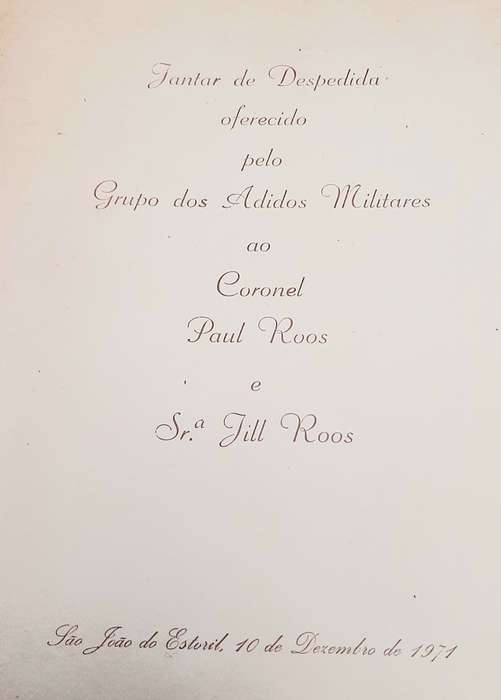 Jantar de Despedida
oferecido
pelo
Grupo dos Adidos Militares
ao
Coronel
Paul Roos
e
Sr.ª Jill Roos
São João do Estoril, 10 de Dezembro de 1971